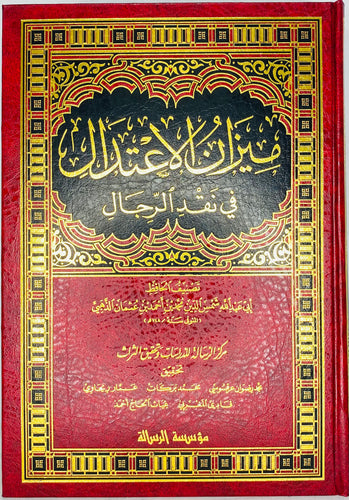 ميزان الاعتدال
في نقد الرجال
تصنيف الحافظ
أبي عبد الله شمس الدين محمد بن أحمد بن عثمان الذهبي
(المتوفى سنة ٧٤٨ هـ)
مركز الرسالة للدراسات وتحقيق التراث
تحقيق
محمد رضوان عرقسوسي محمد بركات عمار ريحاوي
غياث الحاج أحمد
مؤسسة الرسالة